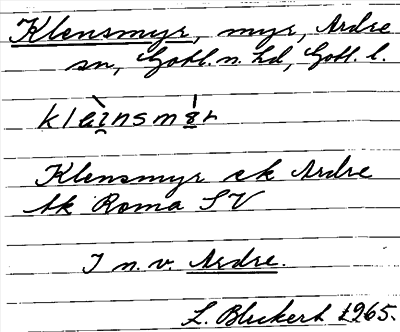 Klensmyr, myr, Ardre
sn, Gotl. n. hd, Gotl. l.
klèinsmȳr
Klensmyr ek Ardre
bk Roma SV
I n. v. Ardre.
L. Bleckert 1965.